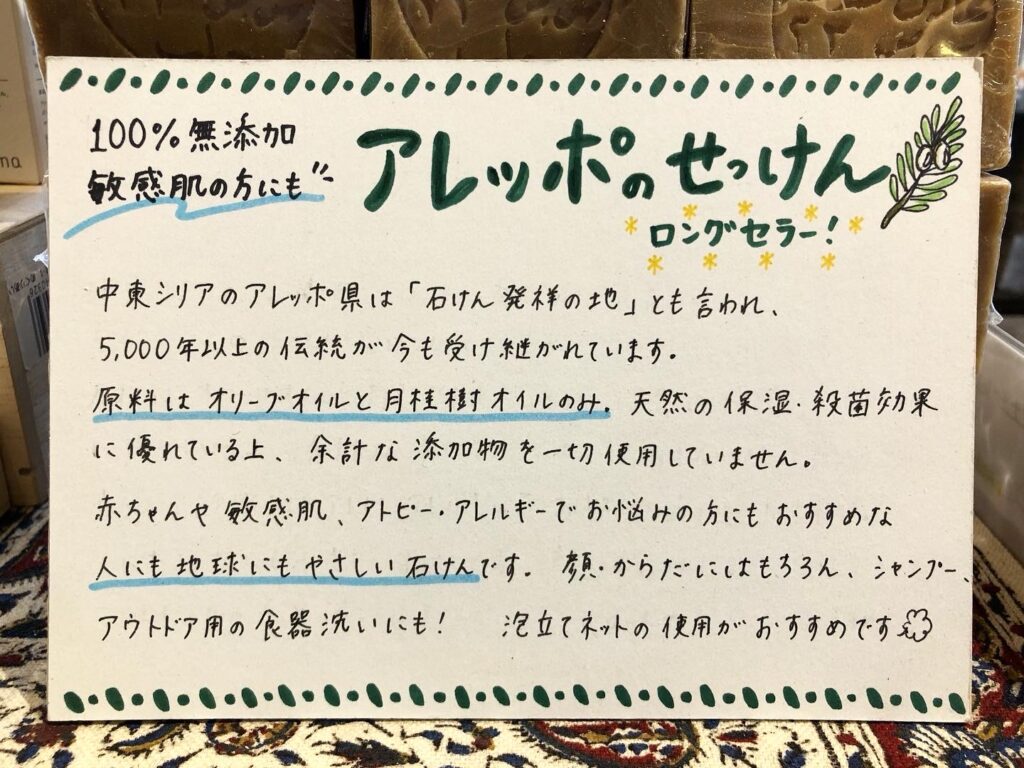 100%無添加
敏感肌の方にも
アレッポのせっけん
ロングセラー!
中東シリアのアレッポ県は「石けん発祥の地」とも言われ、
5,000年以上の伝統が今も受け継がれています。
原料はオリーブオイルと月桂樹オイルのみ。天然の保湿・殺菌効果
に優れている上、余計な添加物を一切使用していません。
赤ちゃんや敏感肌、アトピー・アレルギーでお悩みの方にもおすすめな
人にも地球にもやさしい石けんです。顔・からだにはもちろん、シャンプー、
アウトドア用の食器洗いにも! 泡立てネットの使用がおすすめです
na